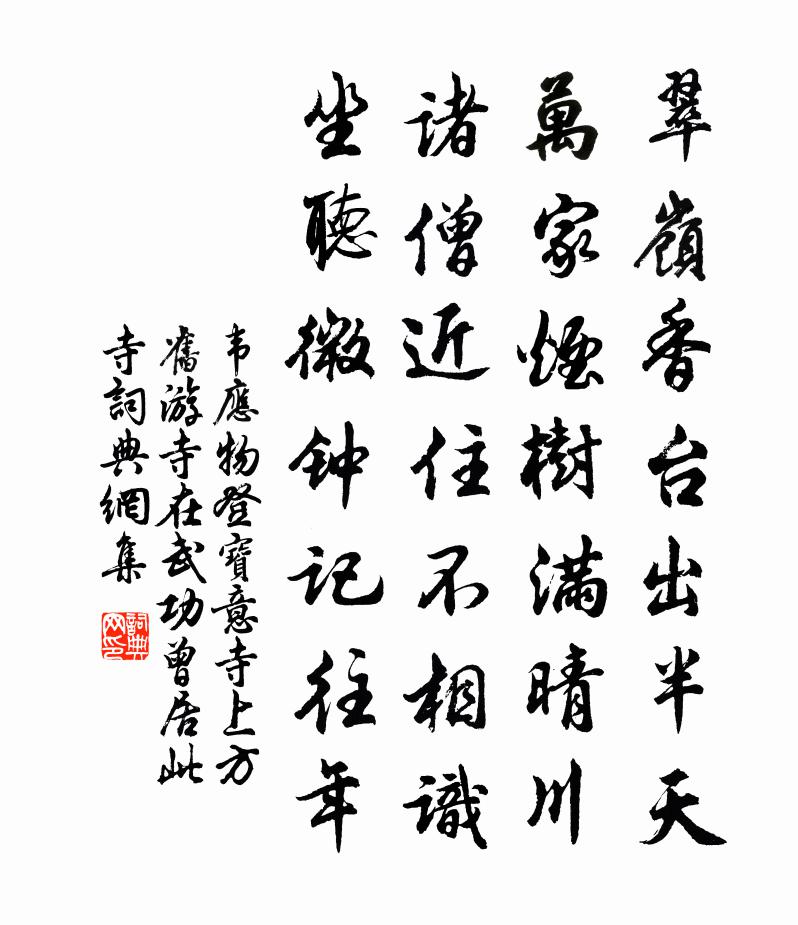 翠嶺香台出半天
萬家煙樹滿晴川
諸僧近住不相識
坐聽微钟記往年
韦應物登寶意寺上方
舊游寺在武功曾居此
寺詞典網集
詞典
网印